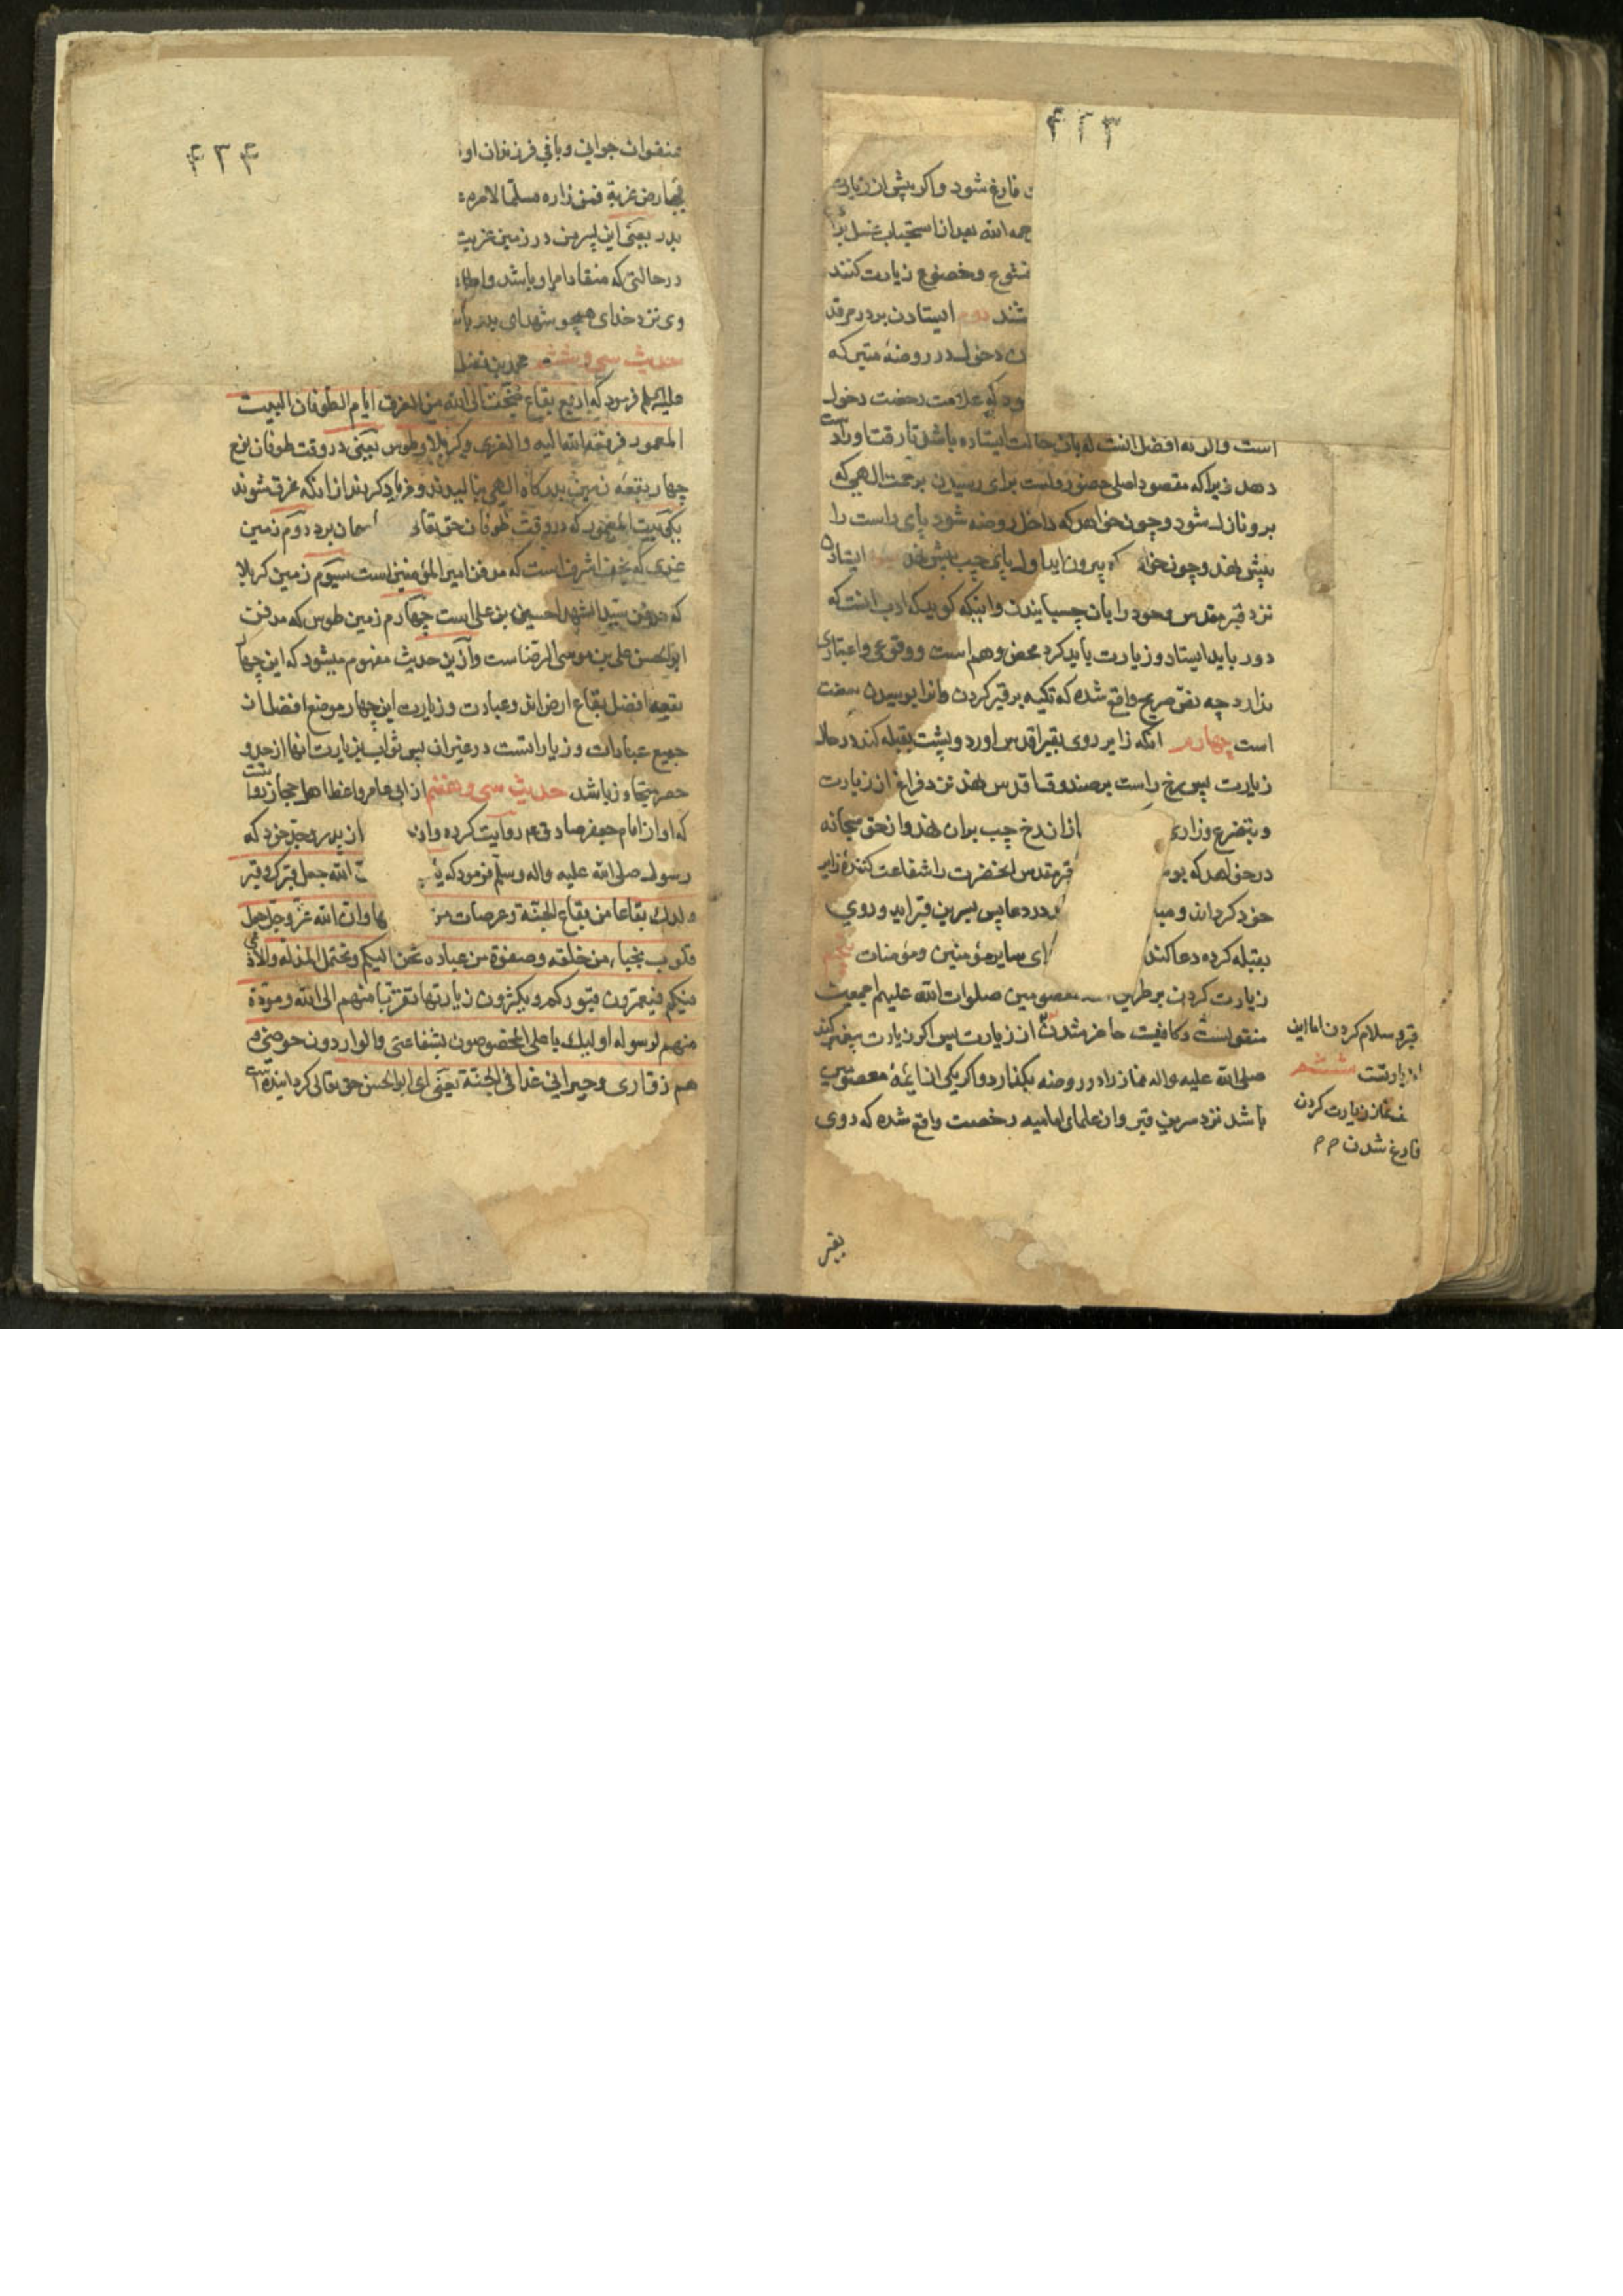 ۴۲۳
فارغ شود و اکر پیش از زیارت
رحمه الله بعد از استحباب غسل
خشوع و خضوع زیارت کنند
شند دوم ایستادن بر در مرقد
دخول در روضهٔ متبرکه
ود که علامت رخصت دخول
است والی نه افضل انست که بان حالت ایستاده باشد تا رقت او را دست
دهد زیرا که مقصود اصلی حضور دلست برای رسیدن برحمت الهی که
برو نازل شود و چون خواهد که داخل روضه شود پای راست را
پیش نهد و چون خواهد که بیرون اید اول پای چپ پیش نهد سیم ایستادن
نزد قبر مقدس و خود را بان چسبانیدن و اینکه کویند که ادب انست که
دور باید ایستاد و زیارت باید کرد محض وهم است و وقوعی و اعتباری
ندارد چه نص صریح واقع شده که تکیه بر قبر کردن و انرا بوسیدن سنت
است چهارم انکه زایر روی بقبر اقدس اورد و پشت بقبله کند در حال
زیارت پس رخ راست بر صندوق اقدس نهد نزد فراغ از زیارت
و بتضرع و زاری از ان رخ چپ بران نهد و از حق سبحانه
در خواهد که بو قبر مقدس انحضرت را شفاعت کنندهٔ زایر
خود کرداند و مبا در دعا پس بسرین قبر اید و روی
بقبله کرده دعا کند ای سایر مؤمنین و مؤمنات پنجم
زیارت کردن بر طریق معصومین صلوات الله علیهم اجمعین
منقولست و کافیست حاضر شدن از زیارت پس اکر زیارت پیغمبر کند
صلی الله علیه و اله نماز را در روضه بکذارد و اکر یکی از ائمهٔ معصومین
باشد نزد سرین قبر و از علمای امامیه رخصت واقع شده که روی
قبر و سلام کردن اما این
زیارتست ششم
نماز زیارت کردن
فارغ شدن
بقبر
۴۲۴
عنفوان جوانی و باقی فرزندان او
بارض غربة فمن زاره مسلما لامره
پدر یعنی این پسر من در زمین غربت
در حالتی که منقاد امر او باشد و
وی نزد خدای همچو شهدای بدر باشد
حدیث سی و ششم محمد بن فضل
علیه السلم فرمود که اربع بقاع ضجت الی الله من الغرق ایام الطوفان البیت
المعمور فرفعه الله الیه و الغری و کربلا و طوس یعنی در وقت طوفان نوح
چهار بقعهٔ زمین بدرکاه الهی نالیدند و فریاد کردند از انکه غرق شوند
یکی بیت المعمور که در وقت طوفان حق تعالی اسمان برد دوم زمین
غری که نجف اشرف است که مدفن امیر المؤمنین است سیوم زمین کربلا
که مدفن سید الشهدا حسین بن علی است چهارم زمین طوس که مدفن
ابو الحسن علی بن موسی الرضا است و از این حدیث مفهوم میشود که این چهار
بقعه افضل بقاع ارض اند و عبادت و زیارت این چهار موضع افضل از
جمیع عبادات و زیاراتست در غیر ان پس ثواب زیارت انها از حد و
حصر متجاوز باشد حدیث سی و هفتم از ابی عامر واعظ اهل حجاز روایتست
که او از امام جعفر صادق ع م روایت کرده و از پدر و جد خود که
رسول صلی الله علیه و اله و سلم فرمود که ان الله جعل قبرک و قبر
ولدک بقاعا من بقاع الجنة و عرصات من و ان الله عز و جل جعل
قلوب نجباء من خلقه و صفوة من عباده تحن الیکم و تحتمل المذلة و الاذی
فیکم فیعمرون قبورکم و یکثرون زیارتها تقربا منهم الی الله و مودة
منهم لرسوله اولیک یا علی المخصوصون بشفاعتی و الواردون حوضی و
هم زواری و جیرانی غدا فی الجنة یعنی ای ابو الحسن حق تعالی کردانیده است